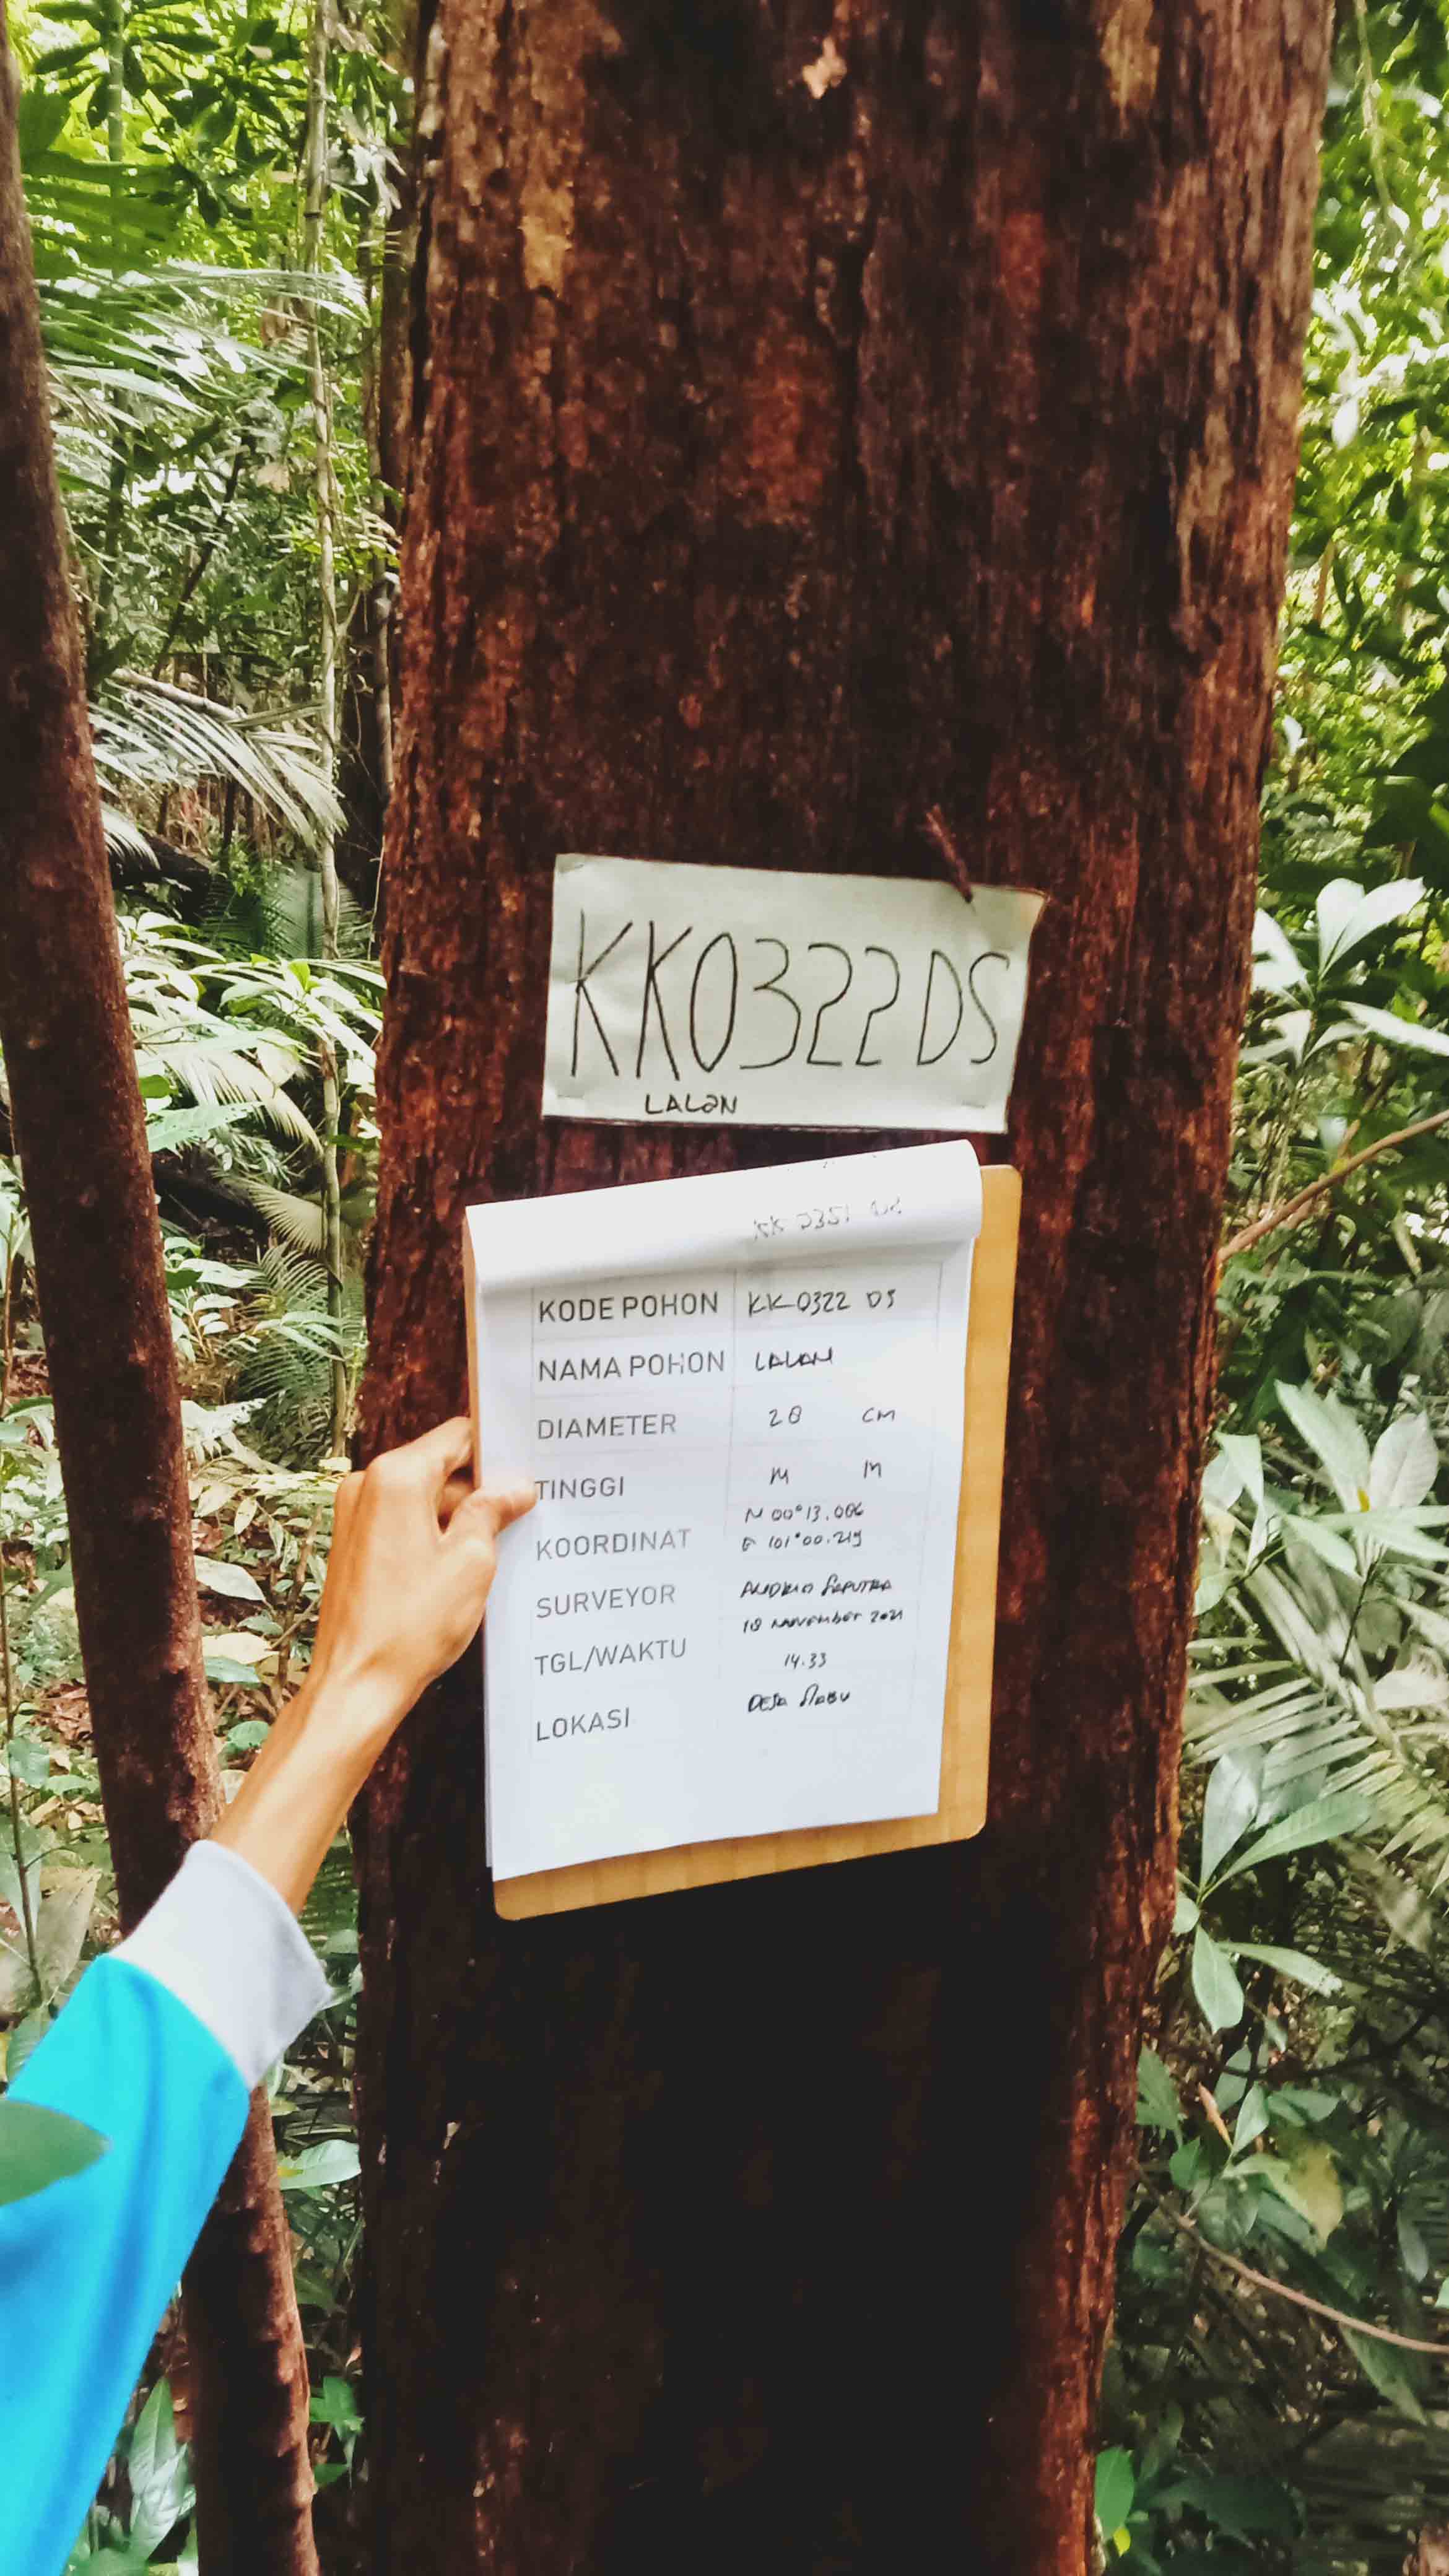 KK0322DS
LALAN
KK 0321 DS
KODE POHON KK 0322 DS
NAMA POHON LALAN
DIAMETER 28 CM
TINGGI M
KOORDINAT N 00°13.006
E 101°00.219
SURVEYOR SAPUTRA
TGL/WAKTU 18 November 2021
14.33
LOKASI DESA